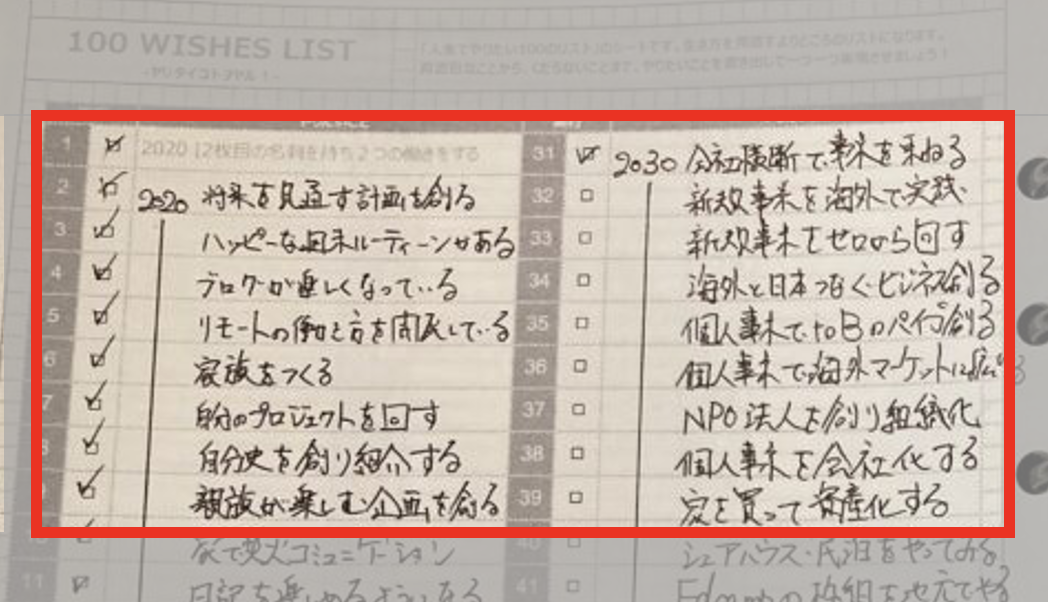 100 WISHES LIST
-ヤリタイコトヲヤル！-
「人生でやりたい100のリスト」のシートです。生き方を
やりたいことを書き出して一つ一つ実現させましょう！
1 2020 2枚目の名刺を持ち2つの働きをする
2 2020 将来を見通す計画を創る
3 ハッピーな週末ルーティーンがある
4 ブログが楽しくなっている
5 リモートの働き方を開拓している
6 家族をつくる
7 自分のプロジェクトを回す
8 自分史を創り紹介する
9 親族が楽しむ企画を創る
家で英火コミュニケーション
11 日記を楽しめるようになる
31 2030 会社横断で事業を束ねる
32 新規事業を海外で実践
33 新規事業をゼロから回す
34 海外と日本つなぐビジネス創る
35 個人事業でtoBのパイプ創る
36 個人事業で海外マーケットに
37 NPO法人を創り組織化
38 個人事業を会社化する
39 家を買って資産化する
40 シェアハウス・民泊をやってみる
41 番組を地元でやる